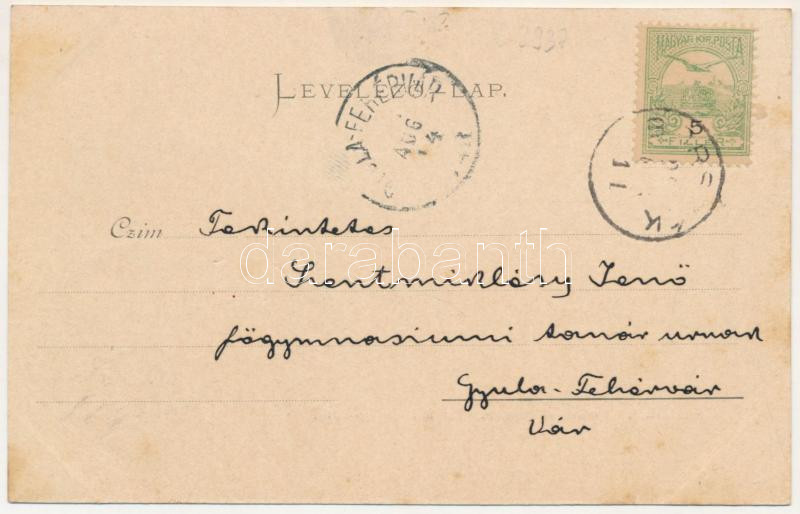 2937
MAGYAR KIR. POSTA
5
FILLÉR
LEVELEZŐ-LAP.
GYULA-FEHÉRVÁR
AUG
14
11
Czim Tekintetes
Szentmiklósy Jenő
főgymnasiumi tanár urnak
Gyula-Fehérvár
Vár
darabanth